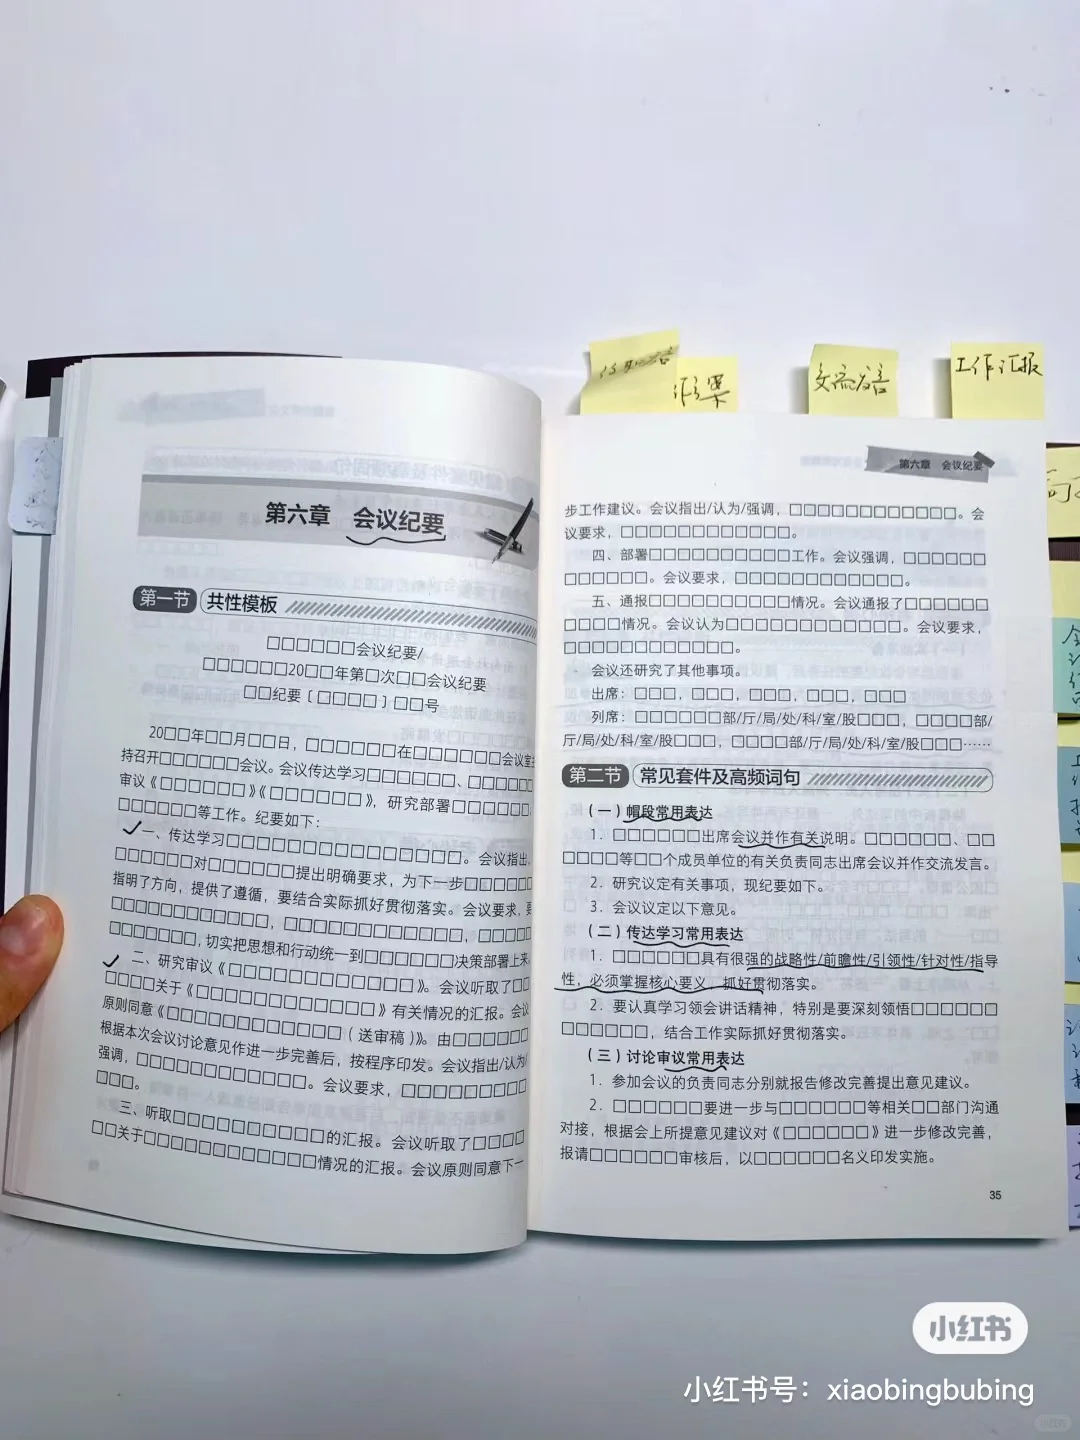 第六章 会议纪要
第一节 共性模板
□□□□□□会议纪要/
□□□□□□20□□年第□次□□会议纪要
□□纪要〔□□□□〕□□号
20□□年□□月□□日，□□□□□□在□□□□□□会议室
持召开□□□□□□会议。会议传达学习□□□□□□、□□□□□
审议《□□□□□□》《□□□□□□》，研究部署□□□□□
□□□□□□等工作。纪要如下：
一、传达学习□□□□□□□□□□□□□□□□□。会议指出，
□□□□□□对□□□□□□提出明确要求，为下一步□□□□□
指明了方向，提供了遵循，要结合实际抓好贯彻落实。会议要求，
□□□□□□□□□□□□，□□□□□□□□□□□□□，□□□□
□□□□□□□，切实把思想和行动统一到□□□□□□决策部署上来。
二、研究审议《□□□□□□□□□□□□□》。会议听取了□□
□□□□关于《□□□□□□□□□□□□□》有关情况的汇报。会议
原则同意《□□□□□□□□□□□□□（送审稿）》。由□□□□□□
根据本次会议讨论意见作进一步完善后，按程序印发。会议指出/认为/
强调，□□□□□□□□□□□□。会议要求，□□□□□□□□□
□□□。
三、听取□□□□□□□□□□□的汇报。会议听取了□□□□
□□关于□□□□□□□□□□□□□情况的汇报。会议原则同意下一
汇报
交流发言
工作汇报
第六章 会议纪要
步工作建议。会议指出/认为/强调，□□□□□□□□□□□□。会
议要求，□□□□□□□□□□□□。
四、部署□□□□□□□□□□工作。会议强调，□□□□□□
□□□□□□。会议要求，□□□□□□□□□□□□。
五、通报□□□□□□□□□□情况。会议通报了□□□□□□
□□□□情况。会议认为□□□□□□□□□□□□。会议要求，
□□□□□□□□□□□□。
会议还研究了其他事项。
出席：□□□，□□□，□□□，□□□，□□□
列席：□□□□□□部/厅/局/处/科/室/股□□□，□□□□部/
厅/局/处/科/室/股□□□，□□□□部/厅/局/处/科/室/股□□□……
第二节 常见套件及高频词句
（一）帽段常用表达
1．□□□□□□出席会议并作有关说明。□□□□□□、□□
□□□□等□□个成员单位的有关负责同志出席会议并作交流发言。
2．研究议定有关事项，现纪要如下。
3．会议议定以下意见。
（二）传达学习常用表达
1．□□□□□□具有很强的战略性/前瞻性/引领性/针对性/指导
性，必须掌握核心要义，抓好贯彻落实。
2．要认真学习领会讲话精神，特别是要深刻领悟□□□□□□
□□□□□□，结合工作实际抓好贯彻落实。
（三）讨论审议常用表达
1．参加会议的负责同志分别就报告修改完善提出意见建议。
2．□□□□□□要进一步与□□□□□□等相关□□部门沟通
对接，根据会上所提意见建议对《□□□□□□》进一步修改完善，
报请□□□□□□审核后，以□□□□□□名义印发实施。
35
小红书
小红书号：xiaobingbubing